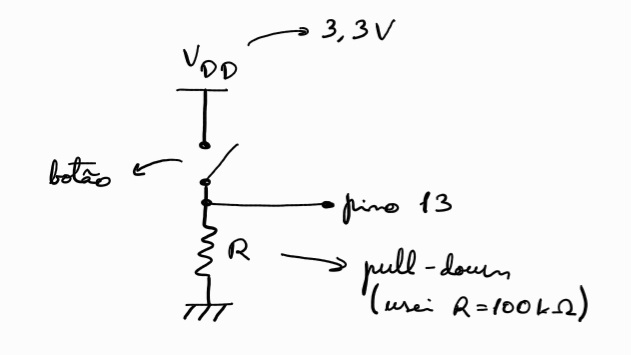 3,3V
VDD
botão
pino 13
R
pull-down
(usei R=100kΩ)